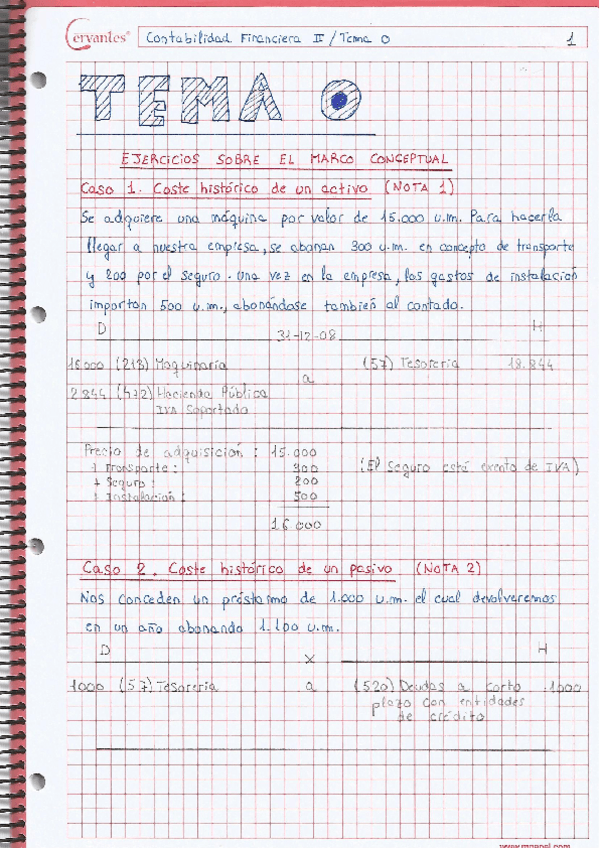 Cervantes® Contabilidad Financiera II / Tema 0 1
TEMA 0
EJERCICIOS SOBRE EL MARCO CONCEPTUAL
Caso 1. Coste histórico de un activo (NOTA 1)
Se adquiere una máquina por valor de 15.000 u.m. Para hacerla
llegar a nuestra empresa, se abonan 300 u.m. en concepto de transporte
y 200 por el seguro. Una vez en la empresa, los gastos de instalación
importan 500 u.m., abonándose también al contado.
D 31-12-08 H
16.000 (213) Maquinaria (57) Tesorería 18.844
a
2.844 (472) Hacienda Pública
IVA Soportado
Precio de adquisición : 15.000
+ Transporte : 300 (El seguro está exento de IVA)
+ Seguro : 200
+ Instalación : 500
16000
Caso 2. Coste histórico de un pasivo (NOTA 2)
Nos conceden un préstamo de 1.000 u.m. el cual devolveremos
en un año abonando 1.100 u.m.
D x H
1000 (57) Tesorería a (520) Deudas a corto 1000
plazo con entidades
de crédito